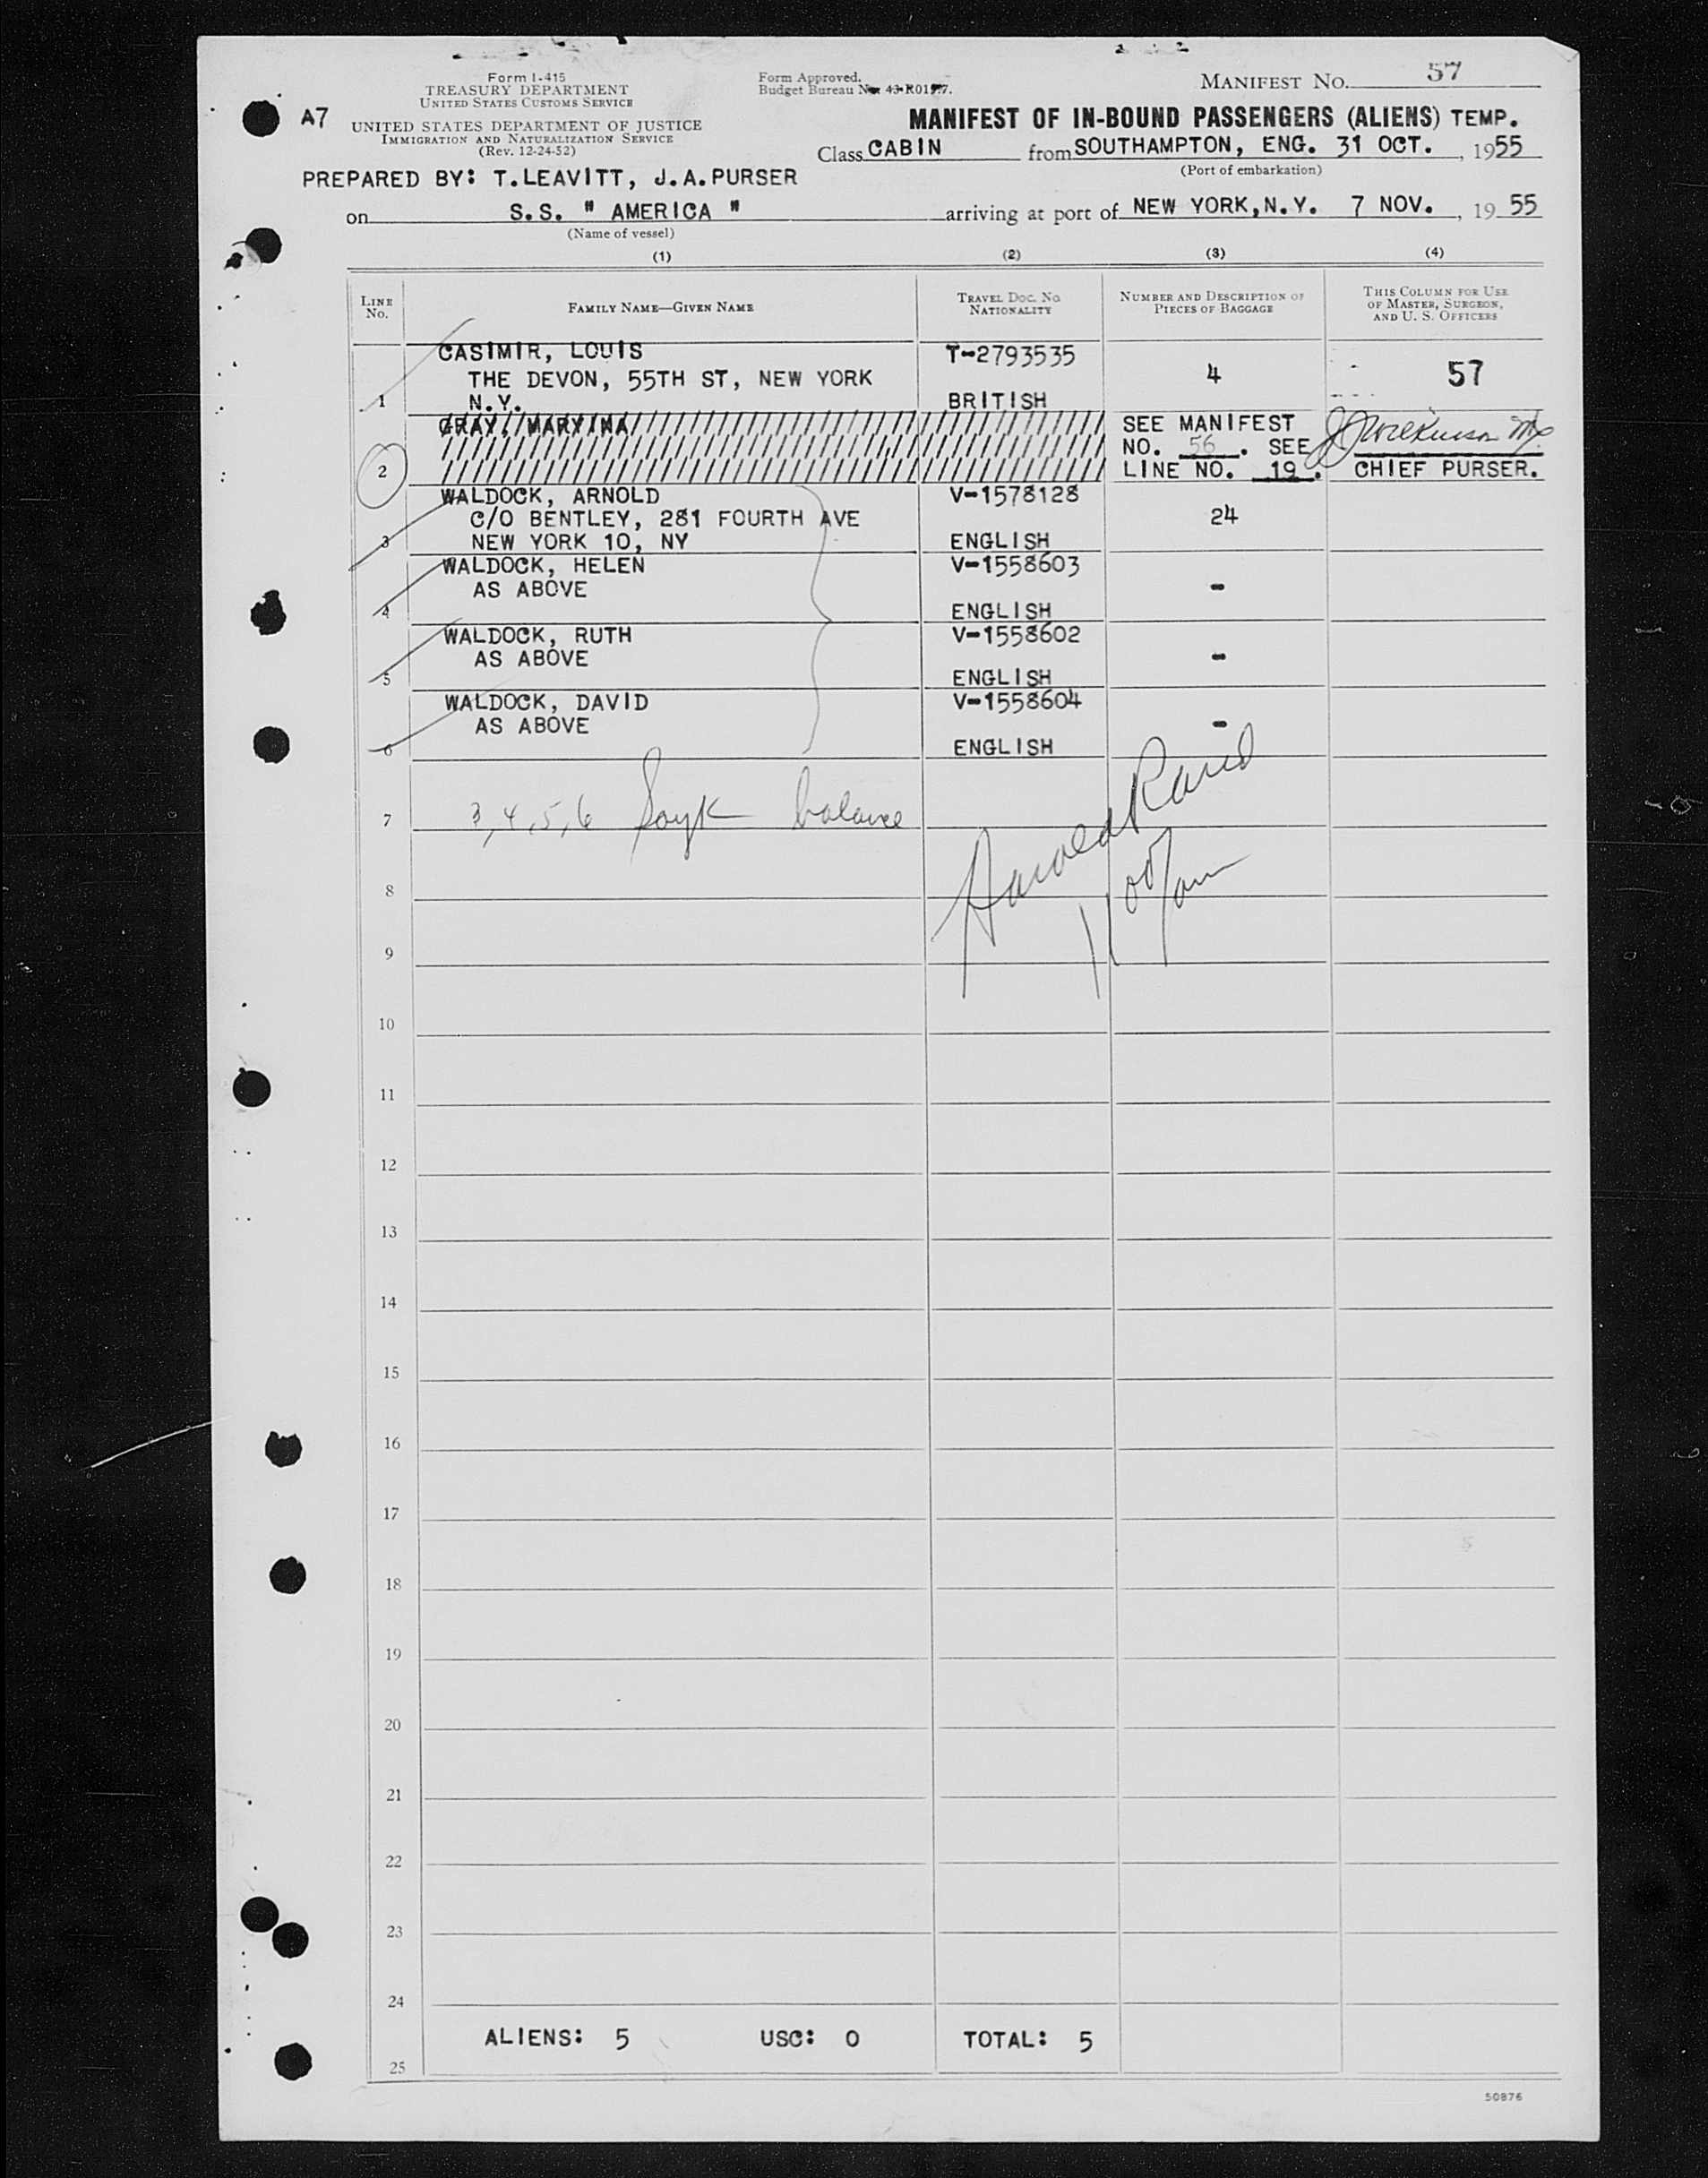 Form I-415
TREASURY DEPARTMENT
UNITED STATES CUSTOMS SERVICE
Form Approved.
Budget Bureau No. 43-R01
MANIFEST NO. 57
A7
UNITED STATES DEPARTMENT OF JUSTICE
IMMIGRATION AND NATURALIZATION SERVICE
(Rev. 12-24-52)
MANIFEST OF IN-BOUND PASSENGERS (ALIENS) TEMP.
Class CABIN from SOUTHAMPTON, ENG. 31 OCT., 1955
(Port of embarkation)
PREPARED BY: T.LEAVITT, J.A.PURSER
on S.S. " AMERICA " arriving at port of NEW YORK, N.Y. 7 NOV., 1955
(Name of vessel)
(1) (2) (3) (4)
LINE NO.
FAMILY NAME—GIVEN NAME
TRAVEL DOC. NO.
NATIONALITY
NUMBER AND DESCRIPTION OF
PIECES OF BAGGAGE
THIS COLUMN FOR USE
OF MASTER, SURGEON,
AND U. S. OFFICERS
CASIMIR, LOUIS T-2793535
THE DEVON, 55TH ST, NEW YORK 4 57
1 N.Y. BRITISH
GRAY, MARY INA SEE MANIFEST
NO. 56. SEE J Wilkinson
2 LINE NO. 19. CHIEF PURSER.
WALDOCK, ARNOLD V-1578128
C/O BENTLEY, 281 FOURTH AVE 24
3 NEW YORK 10, NY ENGLISH
WALDOCK, HELEN V-1558603
AS ABOVE -
4 ENGLISH
WALDOCK, RUTH V-1558602
AS ABOVE -
5 ENGLISH
WALDOCK, DAVID V-1558604
AS ABOVE -
6 ENGLISH
7 3, 4, 5, 6 balance
Harold Rand
11 00/am
8
9
10
11
12
13
14
15
16
17
18
19
20
21
22
23
24
ALIENS: 5 USC: 0 TOTAL: 5
25
50876